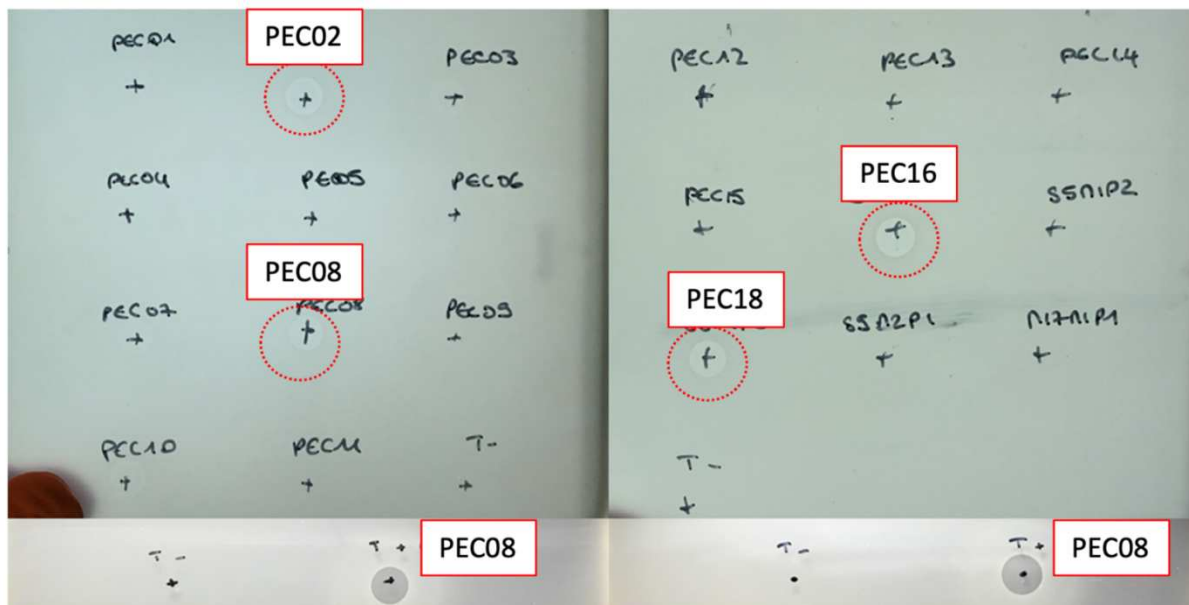 PEC01
PEC02
PEC03
PEC04
PEC05
PEC06
PEC08
PEC07
PEC08
PEC09
PEC10
PEC11
T-
T-
T+
PEC08
PEC12
PEC13
PEC14
PEC16
PEC15
S5M1P2
PEC18
S5M2P1
M17M1P1
T-
T-
T+
PEC08